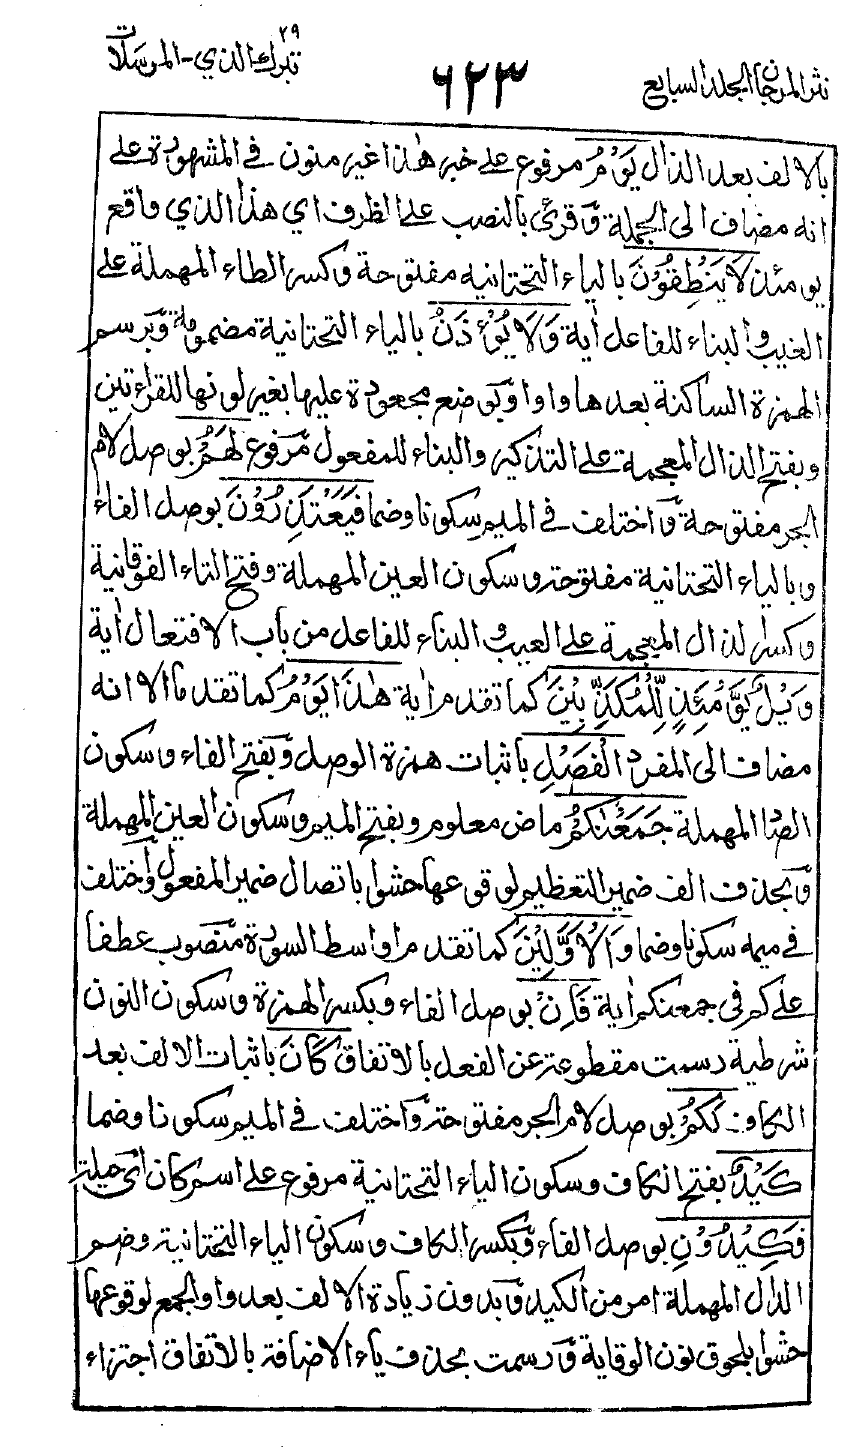 نثر المرجان الجلد السابع
٦٢٣
٢٩
تبرك الذي - المرسلات
بالالف بعد الذال يَوْمُ مرفوع على خبر هٰذا غير منون في المشهورة على
انه مضاف الى الجملة وقرئ بالنصب على الظرف اي هذا الذي واقع
يومئذ لَا يَنْطِقُوْنَ بالياء التحتانيه مفتوحة وكسر الطاء المهملة على
الغيب والبناء للفاعل اٰية وَلَا يُؤْذَنُ بالياء التحتانية مضمومة وبرسم
الهمزة الساكنة بعدها واوا وبوضع مجعودة عليها بغير لونها للقراءتين
وبفتح الذال المعجمة على التذكير والبناء للمفعول مرفوع لَهُمْ بوصل لام
الجر مفتوحة واختلف في الميم سكونا وضما فَيَعْتَذِرُوْنَ بوصل الفاء
وبالياء التحتانية مفتوحة وسكون العين المهملة وفتح التاء الفوقانية
وكسر الذال المعجمة على الغيب والبناء للفاعل من باب الافتعال اٰية
وَيْلٌ يَّوْمَئِذٍ لِّلْمُكَذِّبِيْنَ كما تقدم اٰية هٰذَا يَوْمُ كما تقدما الا انه
مضاف الى المفرد الْفَصْلِ باثبات همزة الوصل وبفتح الفاء وسكون
الصاد المهملة جَمَعْنٰكُمْ ماض معلوم وبفتح الميم وسكون العين المهملة
وبحذف الف ضمير التعظيم لوقوعها حشوا باتصال ضمير المفعول واختلف
في ميمه سكونا وضما وَالْاَوَّلِيْنَ كما تقدم اواسط السورة منصوب عطفا
على كم في جمعنكم اٰية فَاِنْ بوصل الفاء وبكسر الهمزة وسكون النون
شرطية رسمت مقطوعة عن الفعل بالاتفاق كَانَ باثبات الالف بعد
الكاف لَكُمْ بوصل لام الجر مفتوحة واختلف في الميم سكونا وضما
كَيْدٌ بفتح الكاف وسكون الياء التحتانية مرفوع على اسم كان اي حيلة
فَكِيْدُوْنِ بوصل الفاء وبكسر الكاف وسكون الياء التحتانية وضم
الدال المهملة امر من الكيد وبدون زيادة الالف بعد واو الجمع لوقوعها
حشوا بلحوق نون الوقاية ورسمت بحذف ياء الاضافة بالاتفاق اجتزاء